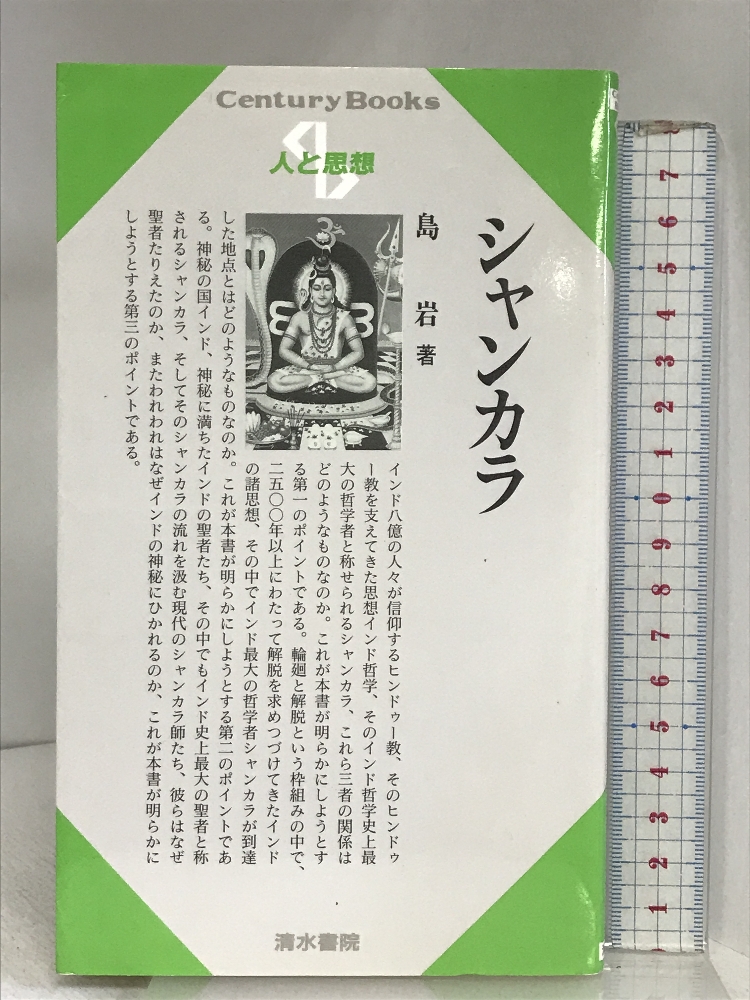 Century Books
人と思想
シャンカラ
島 岩 著
インド八億の人々が信仰するヒンドゥー教、そのヒンドゥ
ー教を支えてきた思想インド哲学、そのインド哲学史上最
大の哲学者と称せられるシャンカラ、これら三者の関係は
どのようなものなのか。これが本書が明らかにしようとす
る第一のポイントである。輪廻と解脱という枠組みの中で、
二五〇〇年以上にわたって解脱を求めつづけてきたインド
の諸思想、その中でインド最大の哲学者シャンカラが到達
した地点とはどのようなものなのか。これが本書が明らかにしようとする第二のポイントであ
る。神秘の国インド、神秘に満ちたインドの聖者たち、その中でもインド史上最大の聖者と称
されるシャンカラ、そしてそのシャンカラの流れを汲む現代のシャンカラ師たち、彼らはなぜ
聖者たりえたのか、またわれわれはなぜインドの神秘にひかれるのか、これが本書が明らかに
しようとする第三のポイントである。
清水書院
ॐ
8
7
6
5
4
3
2
1
0
9
8
7
6
5
4
3
2
1